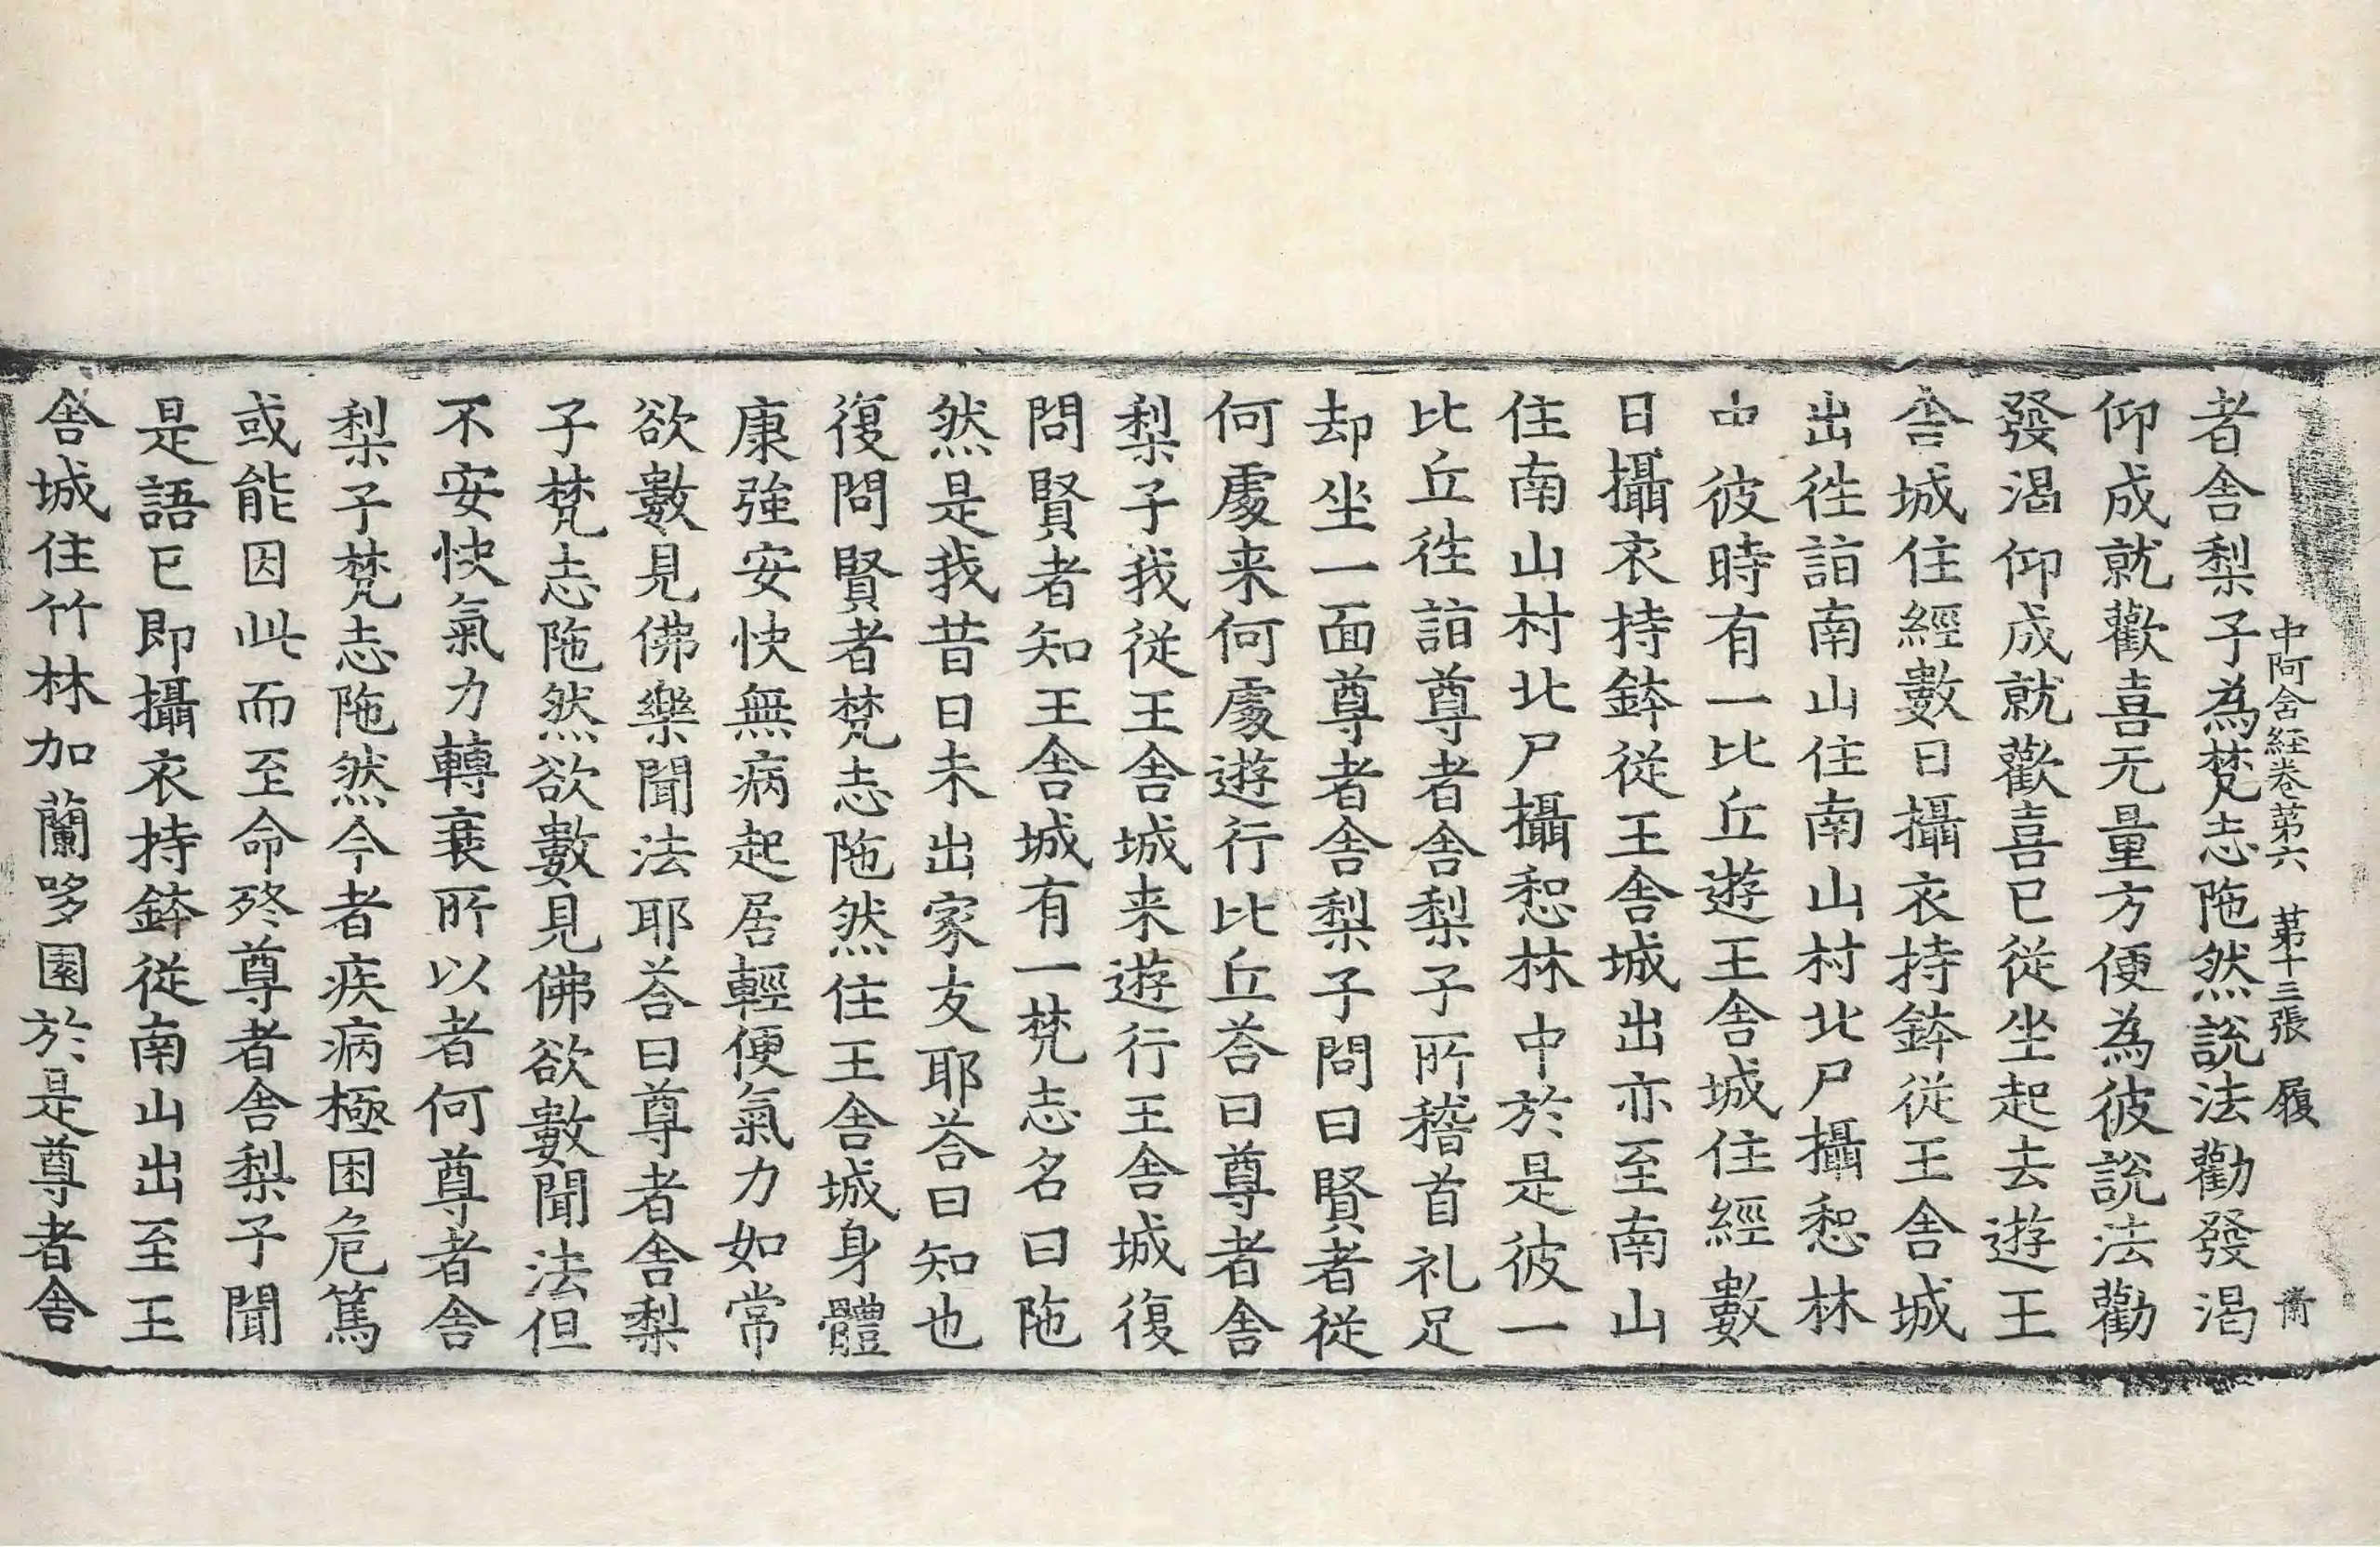 中阿含経卷第六 第十三張 履
者舎梨子為梵志陁然說法勸發渴
仰成就歡喜无量方便為彼說法勸
發渴仰成就歡喜已從坐起去遊王
舎城住經數日攝衣持鉢從王舎城
出徃詣南山住南山村北尸攝惒林
中彼時有一比丘遊王舎城住經數
日攝衣持鉢從王舎城出亦至南山
住南山村北尸攝惒林中於是彼一
比丘徃詣尊者舎梨子所稽首礼足
却坐一面尊者舎梨子問曰賢者從
何處来何處遊行比丘荅曰尊者舎
梨子我從王舎城来遊行王舎城復
問賢者知王舎城有一梵志名曰陁
然是我昔日未出家友耶荅曰知也
復問賢者梵志陁然住王舎城身體
康強安快無病起居輕便氣力如常
欲數見佛樂聞法耶荅曰尊者舎梨
子梵志陁然欲數見佛欲數聞法但
不安快氣力轉衰所以者何尊者舎
梨子梵志陁然今者疾病極困危篤
或能因此而至命終尊者舎梨子聞
是語已即攝衣持鉢從南山出至王
舎城住竹林加蘭哆園於是尊者舎